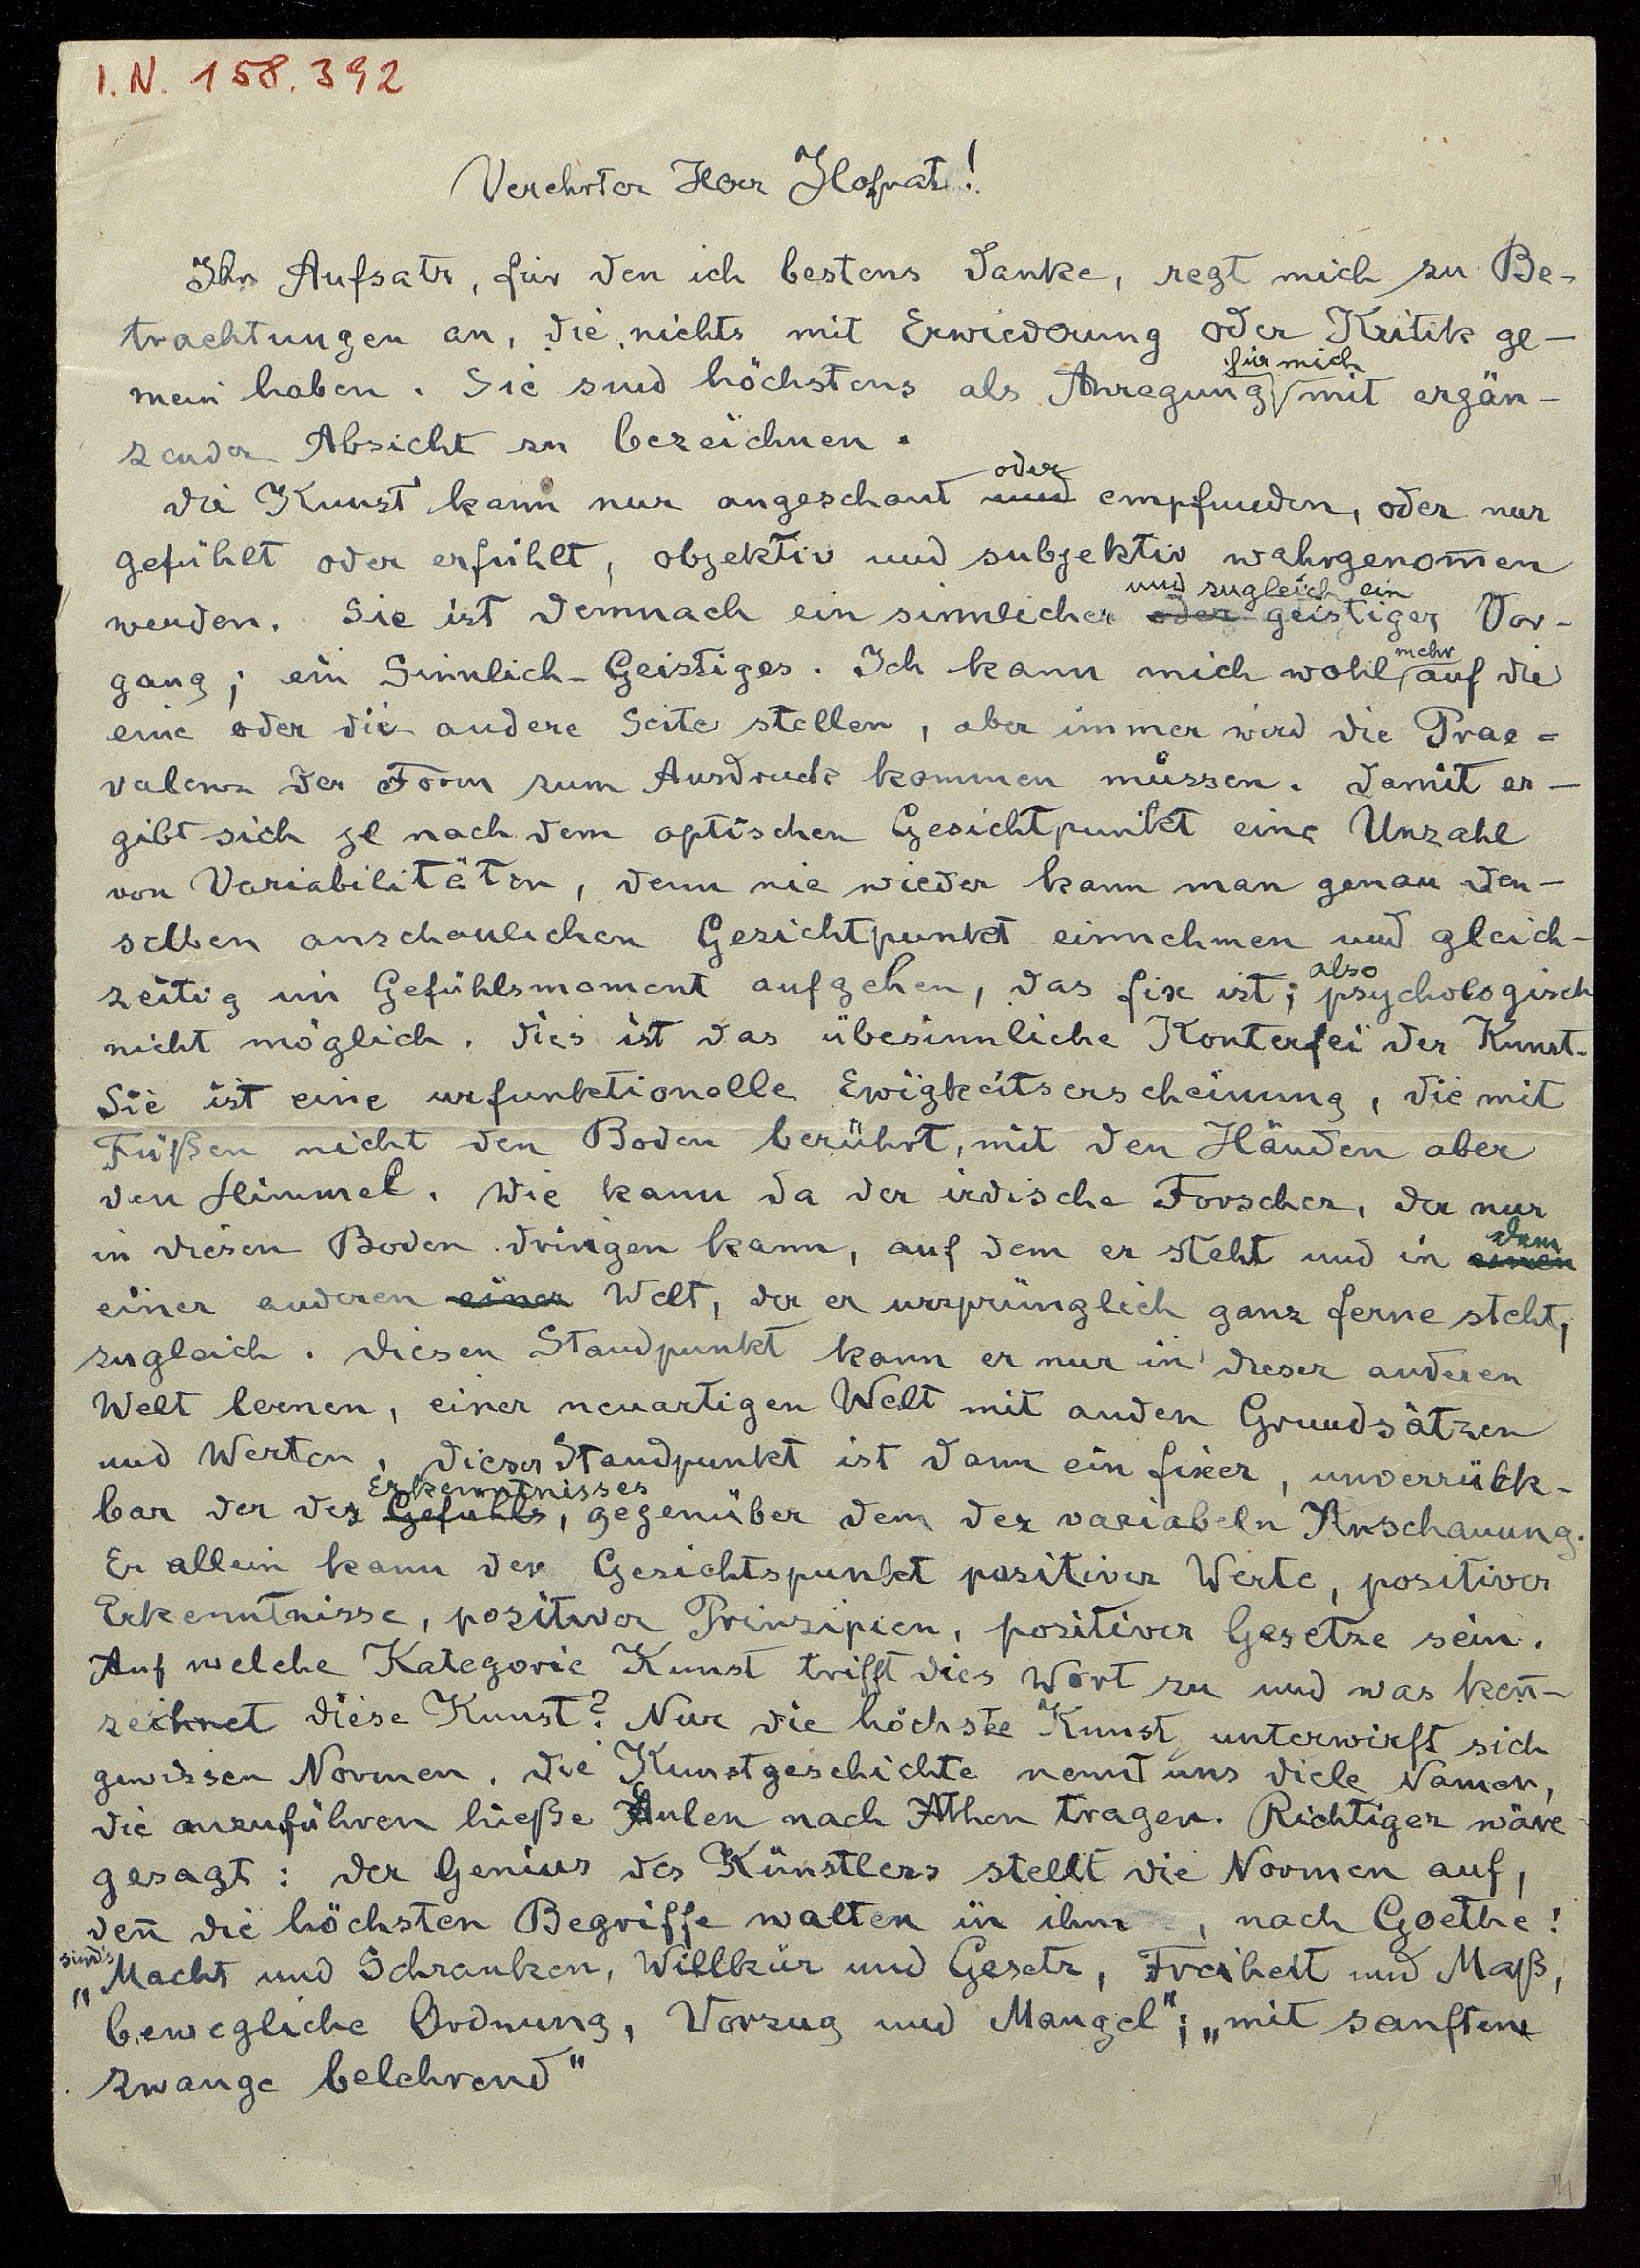 I.N. 158.392
Verehrter Herr Hofrat!
Ihr Aufsatz, für den ich bestens danke, regt mich zu Be-
trachtungen an, die nichts mit Erwiederung oder Kritik ge-
für mich
mein haben. Sie sind höchstens als Anregung mit ergän-
zender Absicht zu bezeichnen.
oder
Die Kunst kann nur angeschaut und empfunden, oder nur
gefühlt oder erfühlt, objektiv und subjektiv wahrgenom̄en
und zugleich ein
werden. Sie ist demnach ein sinnlicher oder geistiger Vor-
mehr
gang; ein Sinnlich-Geistiges. Ich kann mich wohl auf die
eine oder die andere Seite stellen, aber immer wird die Prae-
valenz der Form zum Ausdruck kommen müssen. Damit er-
gibt sich je nach dem optischen Gesichtpunkt eine Unzahl
von Variabilitäten, denn nie wieder kann man genau den-
selben anschaulichen Gesichtpunkt einnehmen und gleich-
also
zeitig im Gefühlsmoment aufgehen, das fix ist; psychologisch
nicht möglich. Dies ist das übesinnliche Konterfei der Kunst.
Sie ist eine urfunktionelle Ewigkeitserscheinung, die mit
Füßen nicht den Boden berührt, mit den Händen aber
den Himmel. Wie kann da der irdische Forscher, der nur
dem
in diesen Boden dringen kann, auf dem er steht und in einen
einer anderen einer Welt, der er ursprünglich ganz ferne steht,
zugleich. Diesen Standpunkt kann er nur in dieser anderen
Welt lernen, einer neuartigen Welt mit anden Grundsätzen
und Werten, dieser Standpunkt ist dann ein fixer, unverrück-
Erkenntnisses
bar der des Gefühls, gegenüber dem der variabeln Anschauung.
Er allein kann der Gesichtspunkt positiver Werte, positiver
Erkenntnisse, positiver Prinzipien, positiver Gesetze sein.
Auf welche Kategorie Kunst trifft dies Wort zu und was ken̄-
zeichnet diese Kunst? Nur die höchste Kunst unterwirft sich
gewissen Normen. Die Kunstgeschichte nennt uns viele Namen,
die anzuführen hieße Eulen nach Athen tragen. Richtiger wäre
gesagt: der Genius des Künstlers stellt die Normen auf,
den̄ die höchsten Begriffe walten in ihm, nach Goethe:
sind's
„Macht und Schranken, Willkür und Gesetz, Freiheit und Maß,
bewegliche Ordnung, Vorzug und Mangel"; „mit sanftem
zwange belehrend"